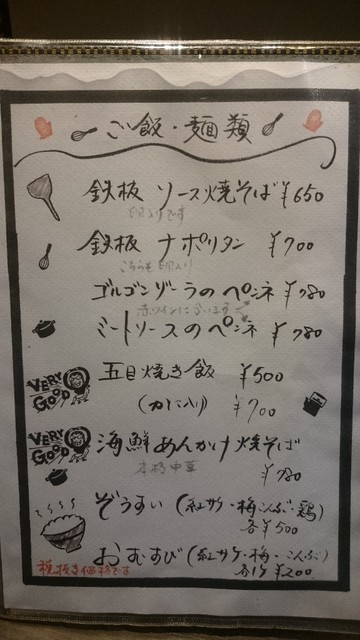 ご飯・麺類
鉄板 ソース焼そば ¥650
卵入りです
鉄板 ナポリタン ¥700
こちらも卵入り
ゴルゴンゾーラのペンネ ¥780
赤ワインに合います
ミートソースのペンネ ¥780
VERY GOOD 五目焼き飯 ¥500
(カニ入り) ¥700
VERY GOOD 海鮮あんかけ焼そば
本格中華 ¥780
ぞうすい (紅サケ・梅こんぶ・鶏)
各¥500
おむすび (紅サケ・梅・こんぶ)
税抜き価格です 各1ケ ¥200